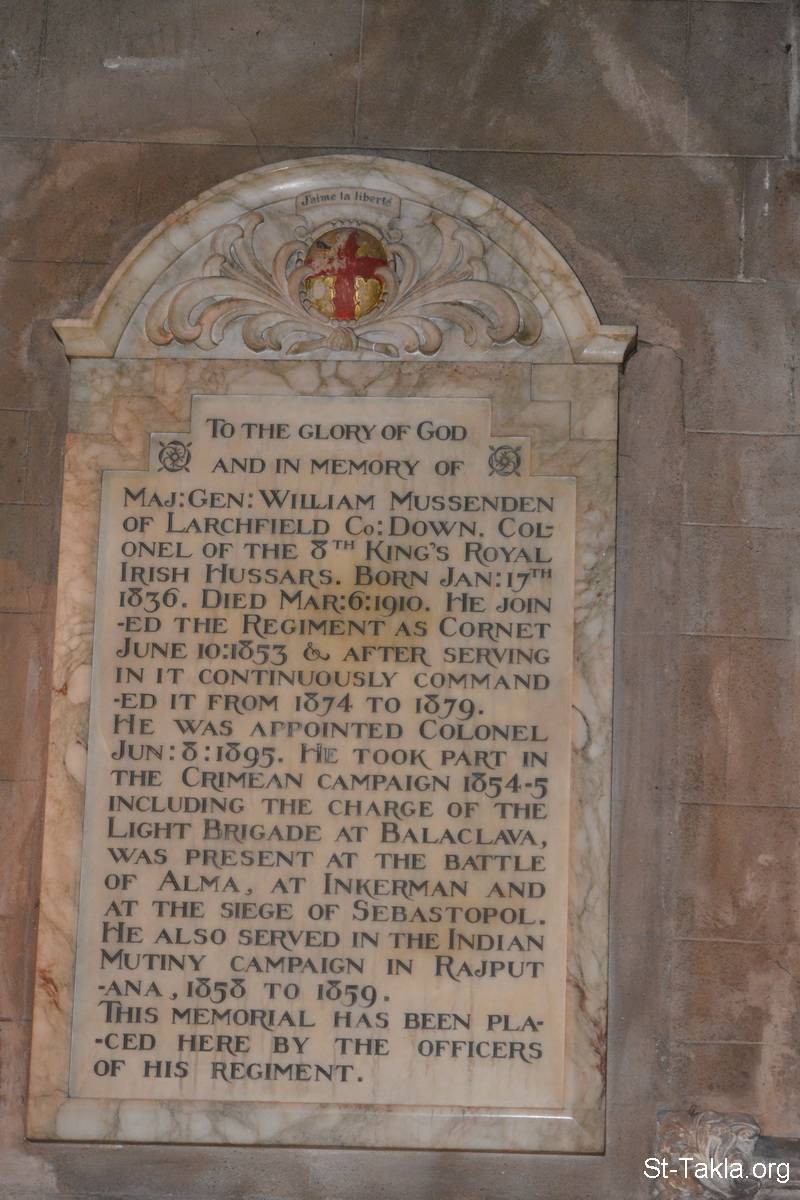 J'aime la liberté
To the glory of God
and in memory of
Maj: Gen: William Mussenden
of Larchfield Co: Down. Col-
onel of the 8th King's Royal
Irish Hussars. Born Jan: 17th
1836. Died Mar: 6: 1910. He join
-ed the Regiment as Cornet
June 10: 1853 & after serving
in it continuously command
-ed it from 1874 to 1879.
He was appointed Colonel
Jun: 8: 1895. He took part in
the Crimean campaign 1854-5
including the charge of the
Light Brigade at Balaclava,
was present at the battle
of Alma, at Inkerman and
at the siege of Sebastopol.
He also served in the Indian
Mutiny campaign in Rajput
-ana, 1858 to 1859.
This memorial has been pla-
-ced here by the officers
of his regiment.
St-Takla.org